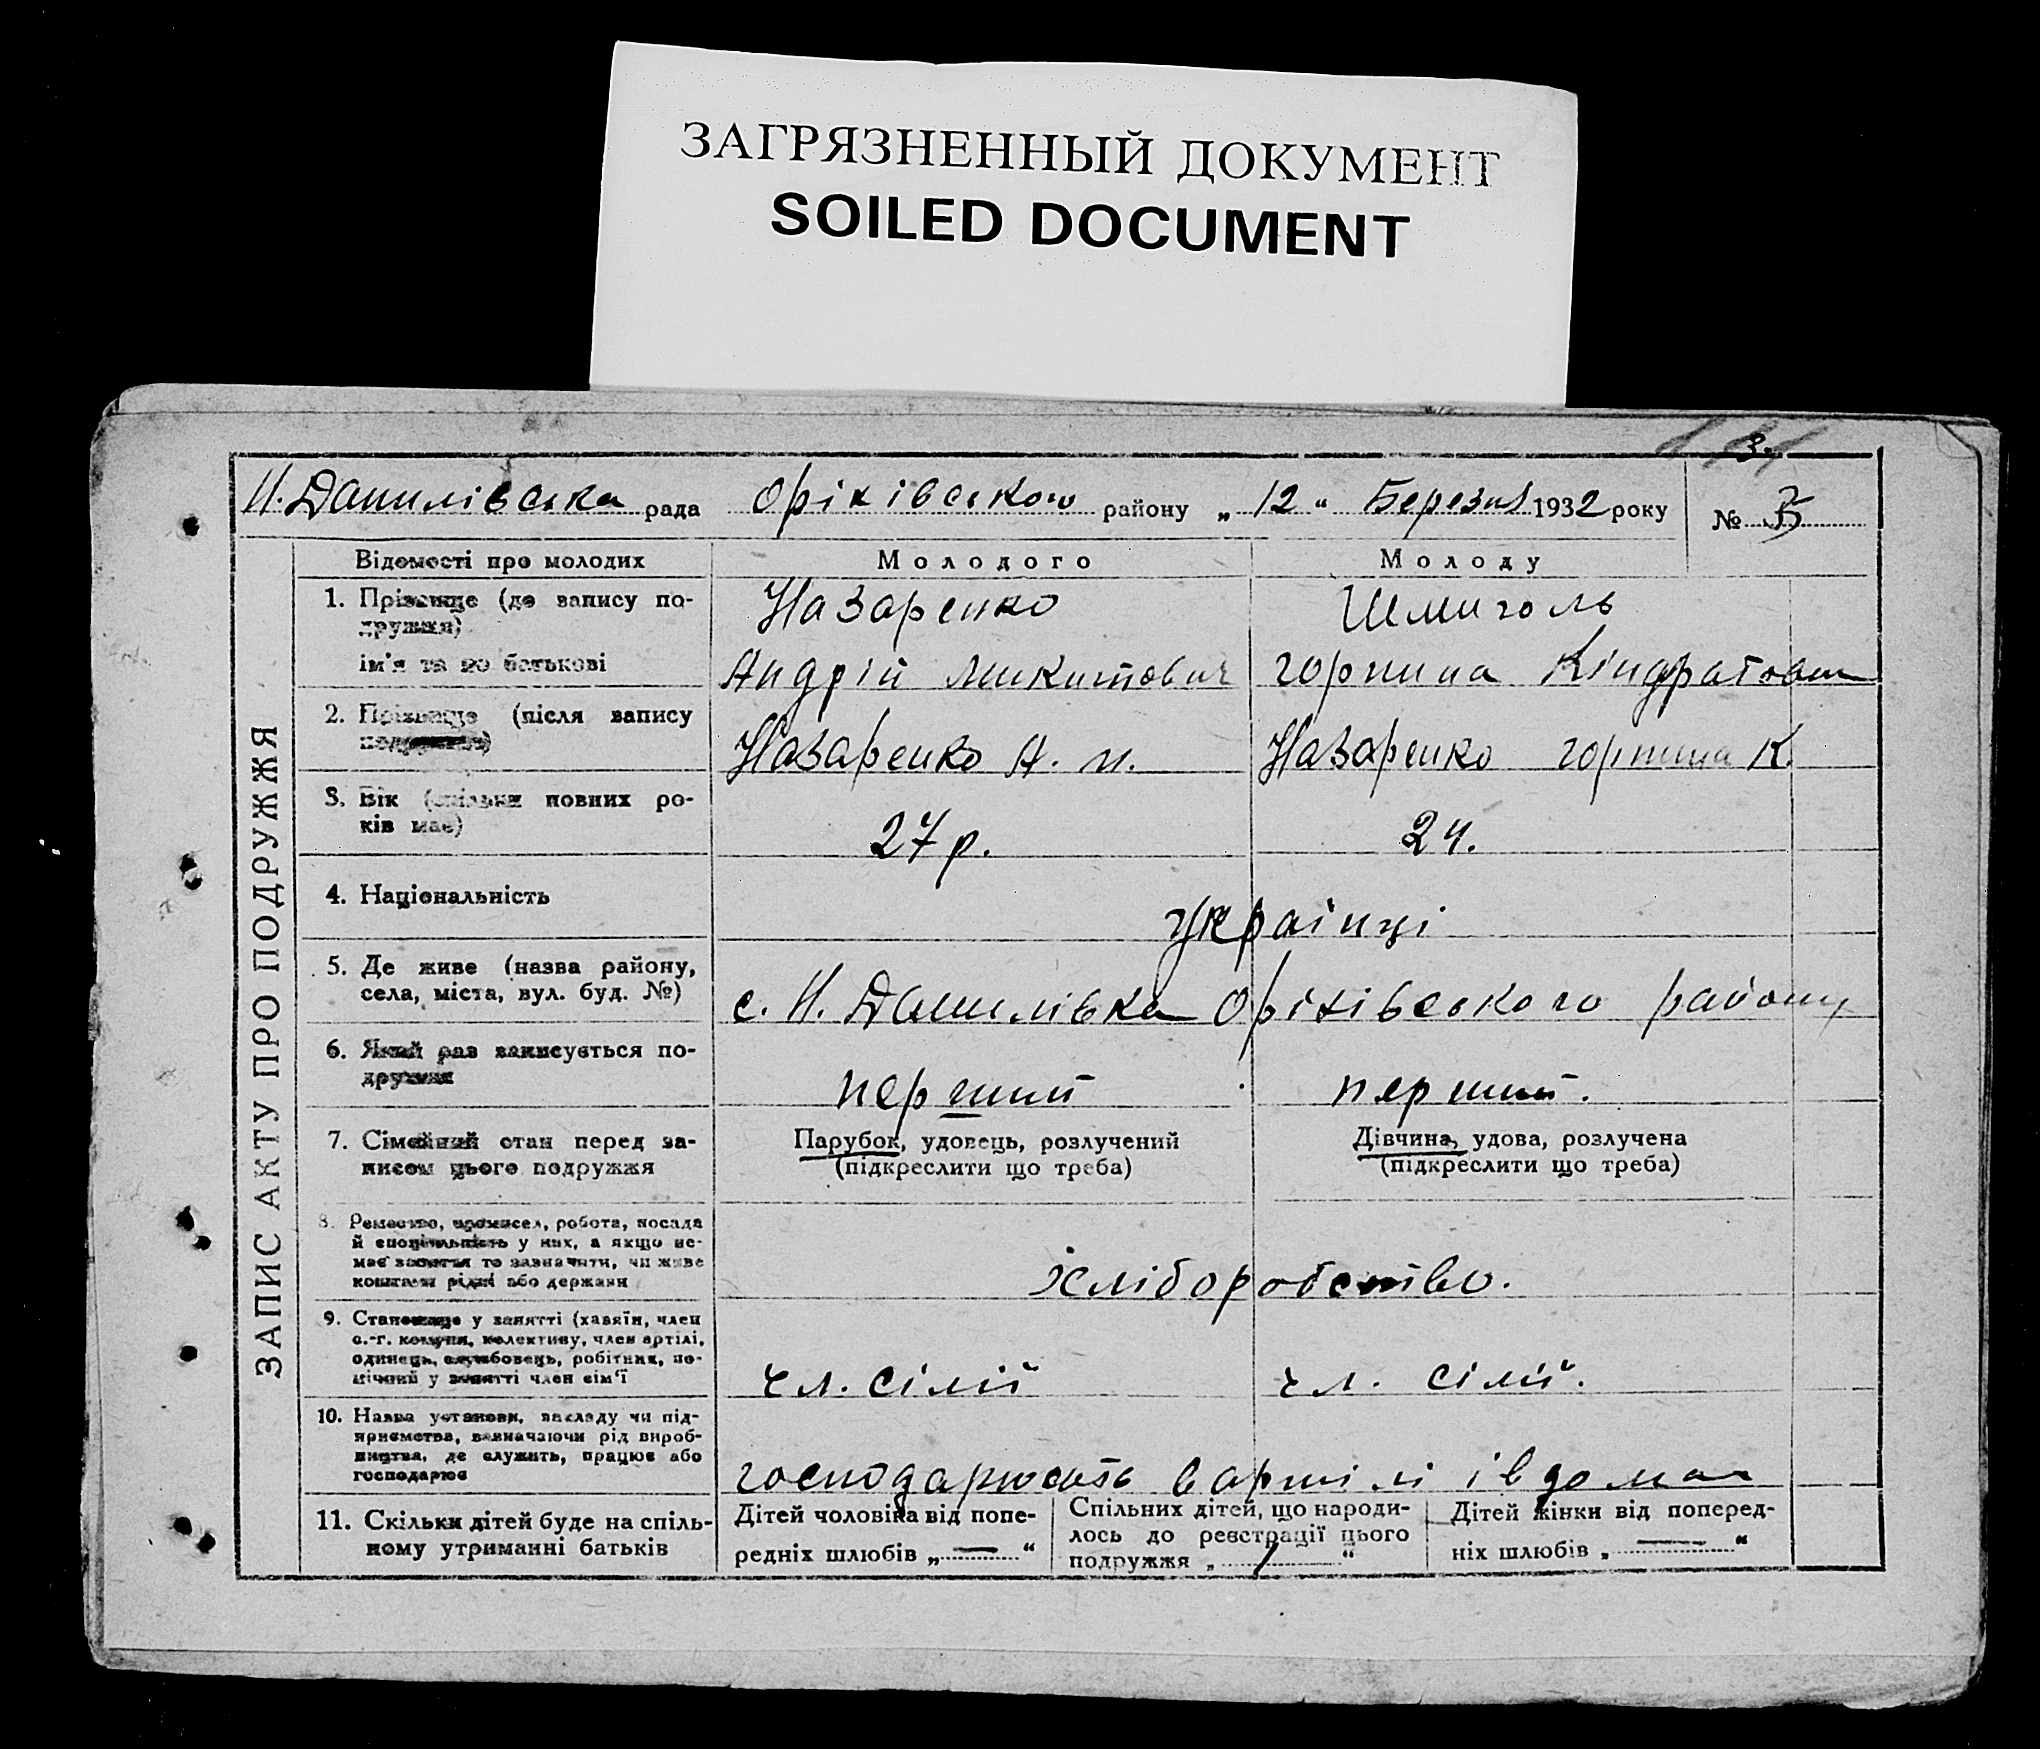 ЗАГРЯЗНЕННЫЙ ДОКУМЕНТ
SOILED DOCUMENT
3.
Н. Данилівська рада Оріхівського району „12“ Березня 1932 року № 5
ЗАПИС АКТУ ПРО ПОДРУЖЖЯ
Відомості про молодих
Молодого
Молоду
1. Прізвище (до запису по-
дружжя)
Назаренко
Шмиголь
ім'я та по батькові
Андрій Микитович
горпина Кіндратовна
2. Прізвище (після запису
подружжя)
Назаренко А. М.
Назаренко горпина К.
3. Вік (скільки повних ро-
ків має)
27 р.
24.
4. Національність
Українці
5. Де живе (назва району,
села, міста, вул. буд. №)
с. Н. Данилівка Оріхівського району
6. Який раз записується по-
дружжя
перший
перший.
7. Сімейний стан перед за-
писом цього подружжя
Парубок, удовець, розлучений
(підкреслити що треба)
Дівчина, удова, розлучена
(підкреслити що треба)
8. Ремество, промисел, робота, посада
й спеціяльність у них, а якщо не-
має заняття то зазначити, чи живе
коштами рідні або держави
хліборобство.
9. Становище у занятті (хазяїн, член
с.-г. комуни, колективу, член артілі,
одинець, службовець, робітник, по-
мічний у занятті член сім'ї
чл. сімії
чл. сімії.
10. Назва установи, закладу чи під-
приємства, зазначаючи рід вироб-
ництва, де служить, працює або
господарює
господарюють в артілі івдома
11. Скільки дітей буде на спіль-
ному утриманні батьків
Дітей чоловіка від попе-
редніх шлюбів „—“
Спільних дітей, що народи-
лось до реєстрації цього
подружжя „ 1 “
Дітей жінки від поперед-
ніх шлюбів „—“